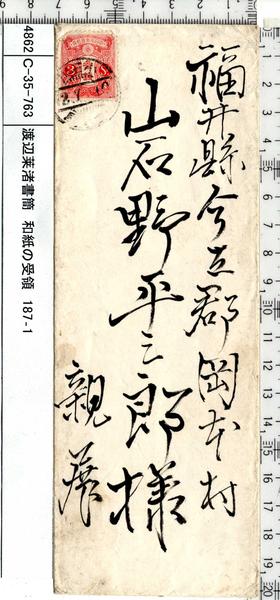 福井縣今立郡岡本村
岩野平三郎様
親展
4862 C-35-763 渡辺莱渚書簡 和紙の受領 187-1